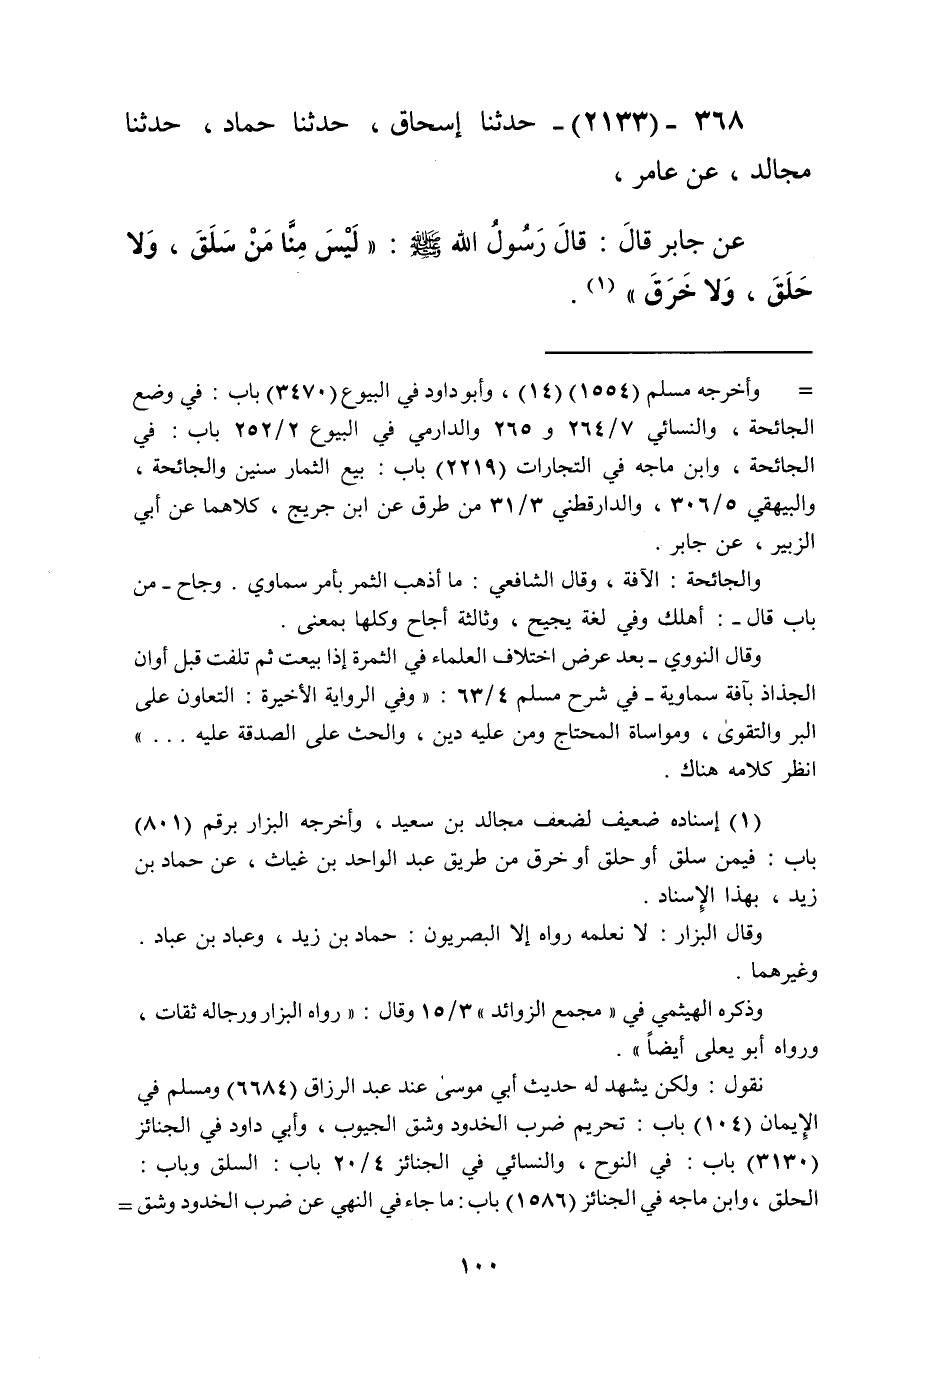 ٣٦٨ - (٢١٣٣) - حدثنا إسحاق ، حدثنا حماد ، حدثنا
مجالد ، عن عامر ،
عن جابر قالَ : قالَ رَسُولُ الله ﷺ : « لَيْسَ مِنَّا مَنْ سَلَقَ ، وَلا
حَلَقَ ، وَلا خَرَقَ » (١) .
= وأخرجه مسلم (١٥٥٤) (١٤) ، وأبو داود في البيوع (٣٤٧٠) باب : في وضع
الجائحة ، والنسائي ٢٦٤/٧ و ٢٦٥ والدارمي في البيوع ٢٥٢/٢ باب : في
الجائحة ، وابن ماجه في التجارات (٢٢١٩) باب : بيع الثمار سنين والجائحة ،
والبيهقي ٣٠٦/٥ ، والدارقطني ٣١/٣ من طرق عن ابن جريج ، كلاهما عن أبي
الزبير ، عن جابر .
والجائحة : الآفة ، وقال الشافعي : ما أذهب الثمر بأمر سماوي . وجاح - من
باب قال - : أهلك وفي لغة يجيح ، وثالثة أجاح وكلها بمعنى .
وقال النووي - بعد عرض اختلاف العلماء في الثمرة إذا بيعت ثم تلفت قبل أوان
الجذاذ بآفة سماوية - في شرح مسلم ٦٣/٤ : « وفي الرواية الأخيرة : التعاون على
البر والتقوىٰ ، ومواساة المحتاج ومن عليه دين ، والحث على الصدقة عليه . . . »
انظر كلامه هناك .
(١) إسناده ضعيف لضعف مجالد بن سعيد ، وأخرجه البزار برقم (٨٠١)
باب : فيمن سلق أو حلق أو خرق من طريق عبد الواحد بن غياث ، عن حماد بن
زيد ، بهذا الإسناد .
وقال البزار : لا نعلمه رواه إلا البصريون : حماد بن زيد ، وعباد بن عباد .
وغيرهما .
وذكره الهيثمي في « مجمع الزوائد » ١٥/٣ وقال : « رواه البزار ورجاله ثقات ،
ورواه أبو يعلى أيضاً » .
نقول : ولكن يشهد له حديث أبي موسىٰ عند عبد الرزاق (٦٦٨٤) ومسلم في
الإيمان (١٠٤) باب : تحريم ضرب الخدود وشق الجيوب ، وأبي داود في الجنائز
(٣١٣٠) باب : في النوح ، والنسائي في الجنائز ٢٠/٤ باب : السلق وباب :
الحلق ، وابن ماجه في الجنائز (١٥٨٦) باب : ما جاء في النهي عن ضرب الخدود وشق =
١٠٠